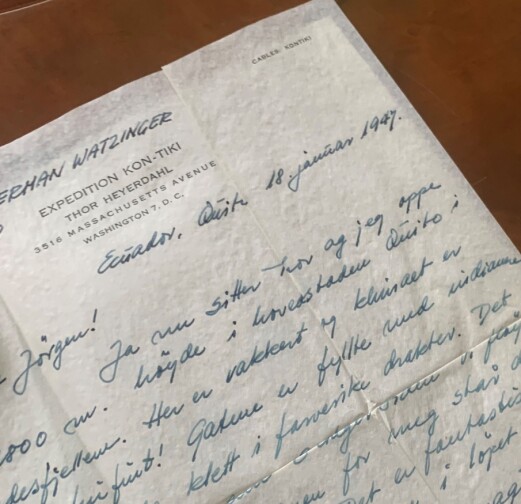 CABLES: KONTIKI
ERMAN WATZINGER
EXPEDITION KON-TIKI
THOR HEYERDAHL
3516 MASSACHUSETTS AVENUE
WASHINGTON 7, D. C.
Ecuador, Quito 18 januar 1947.
Jörgen!
Ja nu sitter Thor og jeg oppe
800 m. höyde i hovedstaden Quito i
desfjellene. Her er vakkert og klimaet er
fint! Gatene er fyllte med indianere
klett i farverike drakter. Det
vi
for meg står
Det er fantastis
i löpet